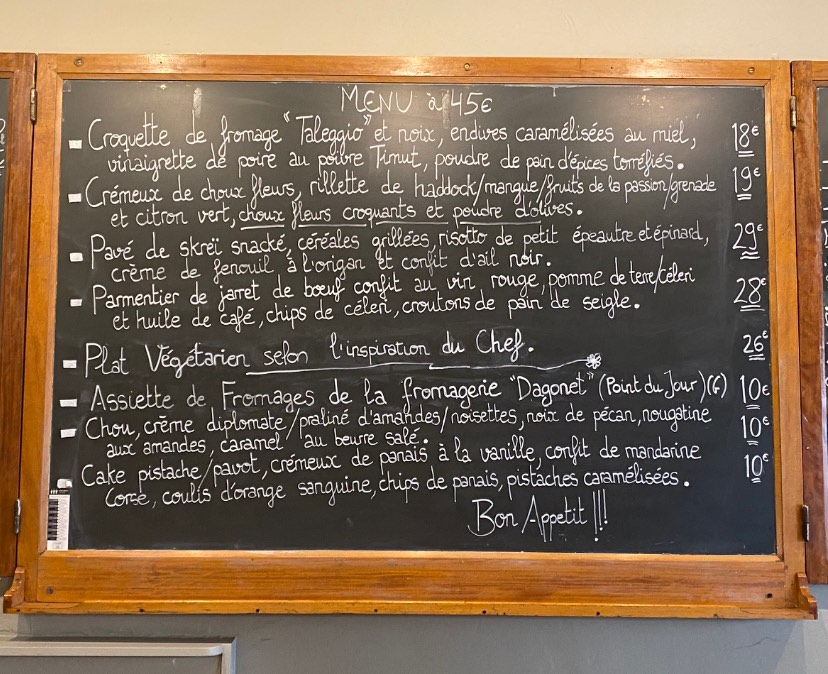 MENU à 45€
- Croquette de fromage "Taleggio" et noix, endives caramélisées au miel, 18€
vinaigrette de poire au poivre Timut, poudre de pain d'épices torréfiés.
- Crémeux de choux fleurs, rillette de haddock/mangue/fruits de la passion/grenade 19€
et citron vert, choux fleurs croquants et poudre d'olives.
- Pavé de skreï snacké, céréales grillées, risotto de petit épeautre et épinard, 29€
crème de fenouil, à l'origan et confit d'ail noir.
- Parmentier de jarret de bœuf confit au vin rouge, pomme de terre/céleri 28€
et huile de café, chips de céleri, croutons de pain de seigle.
- Plat Végétarien selon l'inspiration du Chef. 26€
- Assiette de Fromages de la fromagerie "Dagonet" (Point du Jour) (6) 10€
- Chou, crème diplomate/praliné d'amandes/noisettes, noix de pécan, nougatine 10€
aux amandes, caramel au beurre salé.
Cake pistache/pavot, crémeux de panais à la vanille, confit de mandarine 10€
Corse, coulis d'orange sanguine, chips de panais, pistaches caramélisées.
Bon Appetit !!!